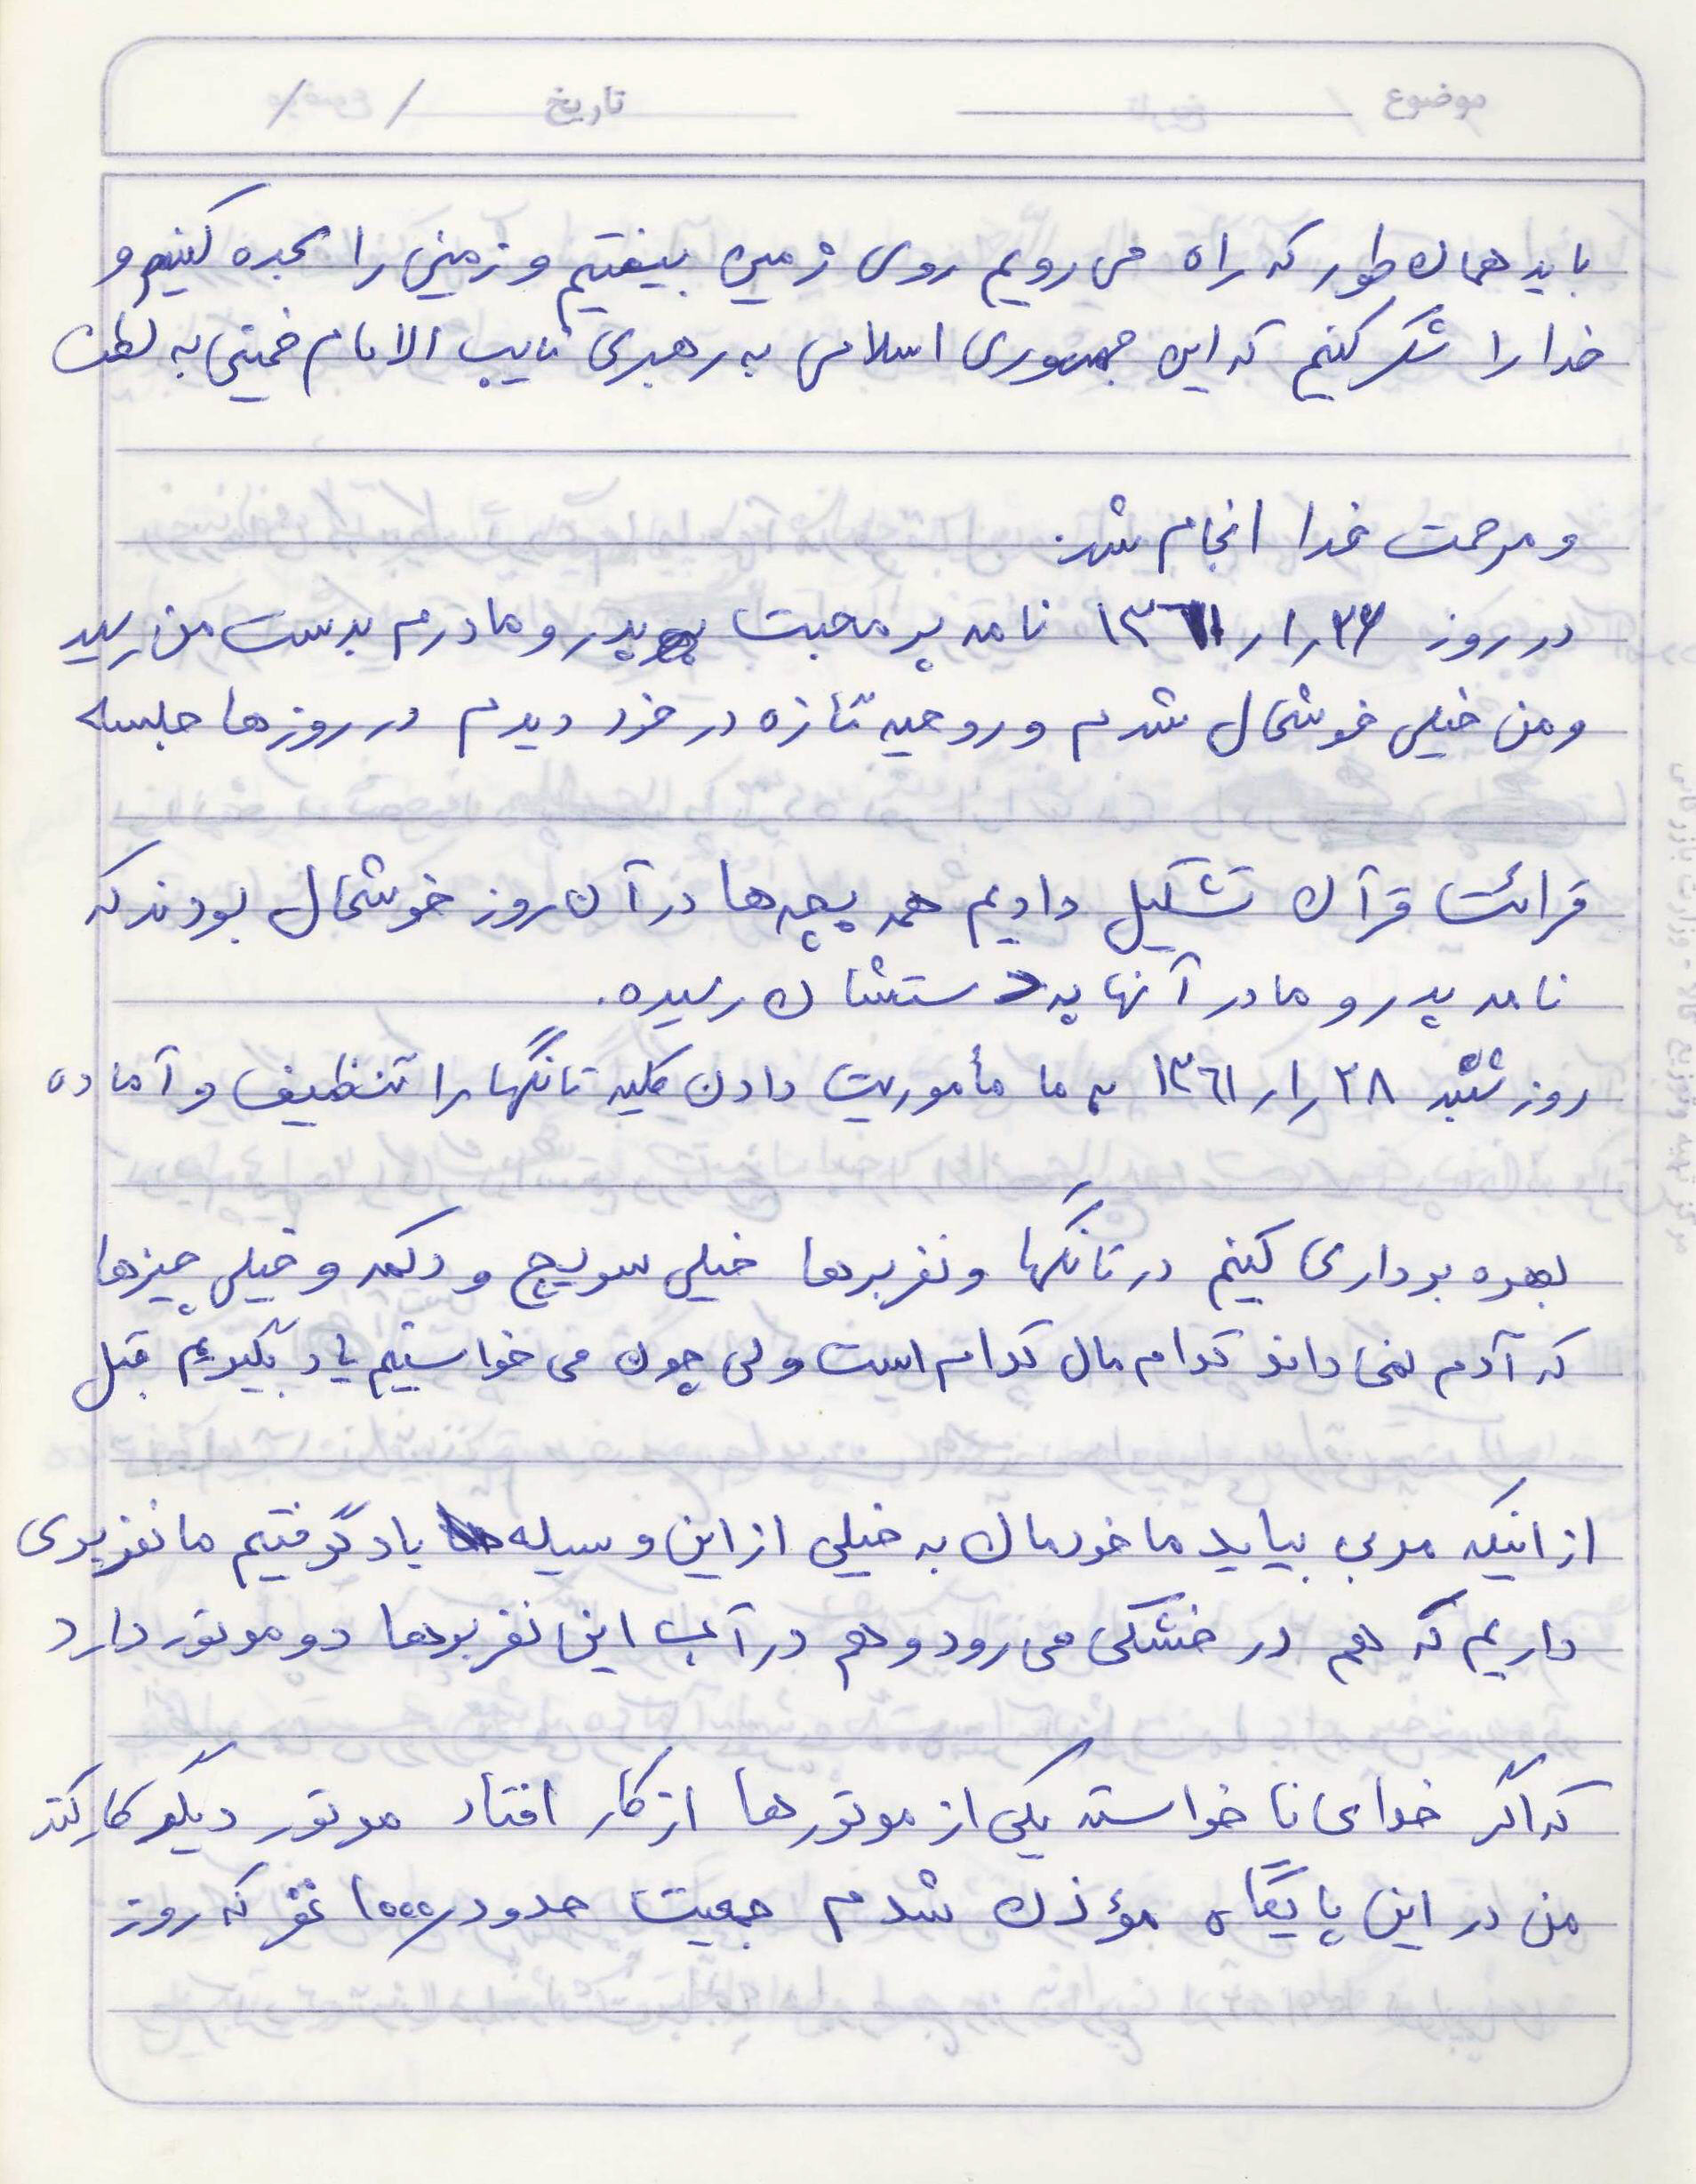 موضوع تاریخ / /
باید همان طور که راه می رویم روی زمین بیفتیم و زمین را سجده کنیم و
خدا را شکر کنیم که این جمهوری اسلامی به رهبری نایب الامام خمینی به لطف
و مرحمت خدا انجام شد.
در روز ۲۶ر۱ر۱۳۶۱ نامه پر محبت پدر و مادرم بدست من رسید
و من خیلی خوشحال شدم و روحیه تازه در خود دیدم در روزها جلسه
قرائت قرآن تشکیل دادیم همه بچه ها در آن روز خوشحال بودند که
نامه پدر و مادر آنها به دستشان رسیده.
روز شنبه ۲۸ر۱ر۱۳۶۱ به ما مأموریت دادن کلیه تانگها را تنظیف و آماده
بهره برداری کنیم در تانگها و نفربرها خیلی سویچ و دکمه و خیلی چیزها
که آدم نمی داند کدام مال کدام است ولی چون می خواستیم یاد بگیریم قبل
از اینکه مربی بیاید ما خودمان به خیلی از این وسیله یاد گرفتیم ما نفربری
داریم که هم در خشکی می رود و هم در آب این نفربرها دو موتور دارد
که اگر خدای نا خواسته یکی از موتورها از کار افتاد موتور دیگر کار کند
من در این پایگاه مؤذن شدم جمعیت حدود ۱۰۰۰ نفر که روز